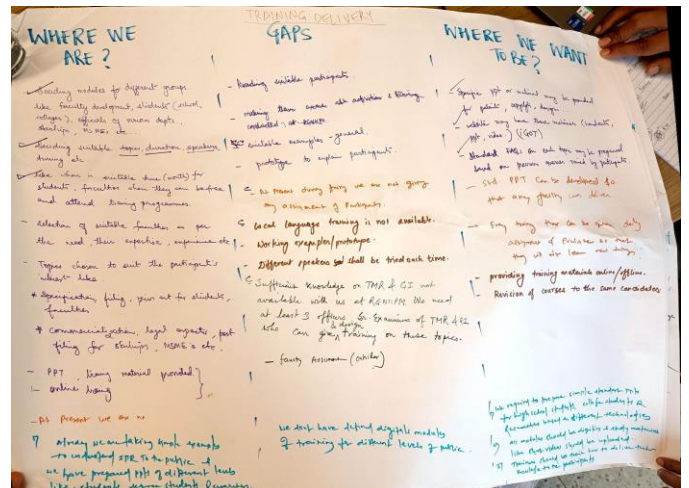 TRAINING DELIVERY
WHERE WE
ARE?
- Deciding modules for different groups
like faculty development, students (school,
colleges), officials of various depts,
startups, MSMEs etc
- Deciding suitable topics, duration, speakers,
timing etc
- Take when is suitable time (month) for
students, faculties when they can be free
and attend training programmes.
- Selection of suitable faculties as per
the need, their expertise, experience etc
- Topics chosen to suit the participant's
interest like.
* Specification, filing, prior art for students,
faculties
* Commercialization, legal aspects, post
filing for startups, MSMEs etc.
- PPT, training material provided
- online training
- At Present we are
already we are taking simple examples
to understand IPR to the public &
we have prepared ppts of different levels
GAPS
- Deciding suitable participants
- making them aware abt activities & training
conducted at RGNIIPM.
suitable examples - general.
- prototype to explain participants.
- At Present during training we are not giving
any assignment to Participants.
- Local language training is not available.
- Working examples/prototype.
- Different speakers shall be tried each time.
Sufficient knowledge on TMR & GI not
available with us at RGNIIPM. We need
at least 3 officers Sr. Examiners of TMR & GI
& design
who can give training on these topics.
- Faculty
We not have defined digital modules
of training for different levels of public.
WHERE WE WANT
TO BE?
- Specific ppt or material may be provided
for patent, copyright, design
- website may have these materials (handouts,
ppt, video) (iGOT)
- Standard FAQs on each topic may be prepared
based on previous queries raised by participants.
- Std. PPT can be developed so
that any faculty can deliver
- Every training there can be
assignment
they will also learn new things.
- providing training materials online/offline.
- Revision of courses to the same candidates
We require to prepare simple standard PPTs
for high school students, college students &
based on different technologies
All modules should be digitised & study materials
like videos should be uploaded.
Trainers should be trained how to deliver their
knowledge to the participants